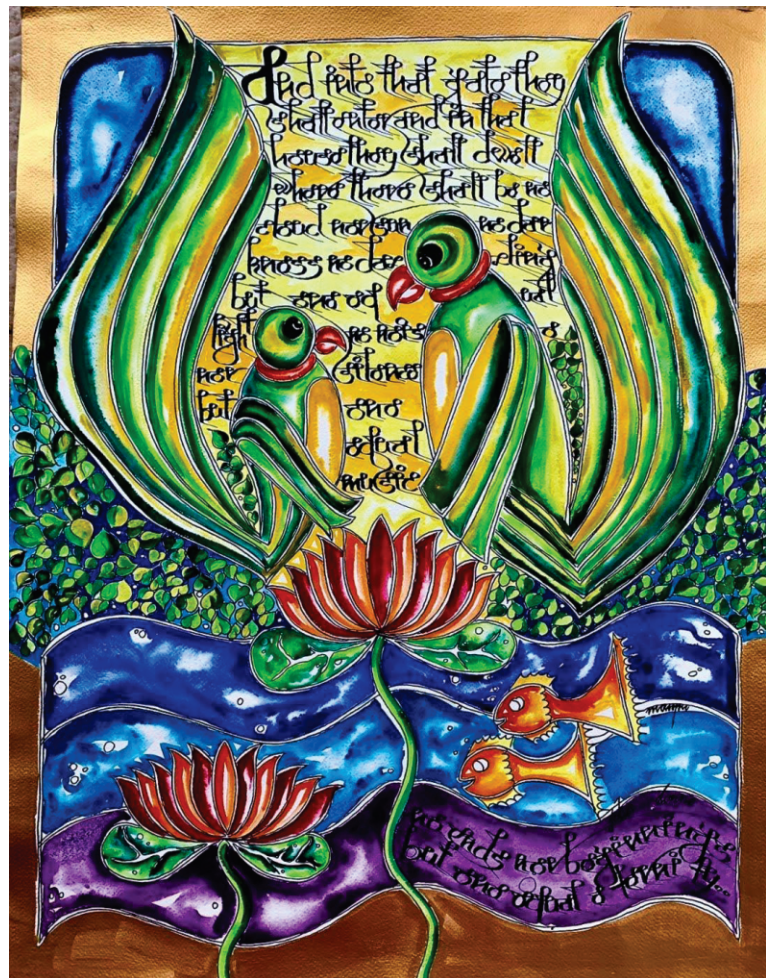 And into that gate they
shall enter and in that
house they shall dwell
where there shall be no
cloud nor sun no dar
kness no daz zling
but one eq ual
light no noise
nor silence
but one
equal
music
no ends nor beginnings
but one equal eternity...